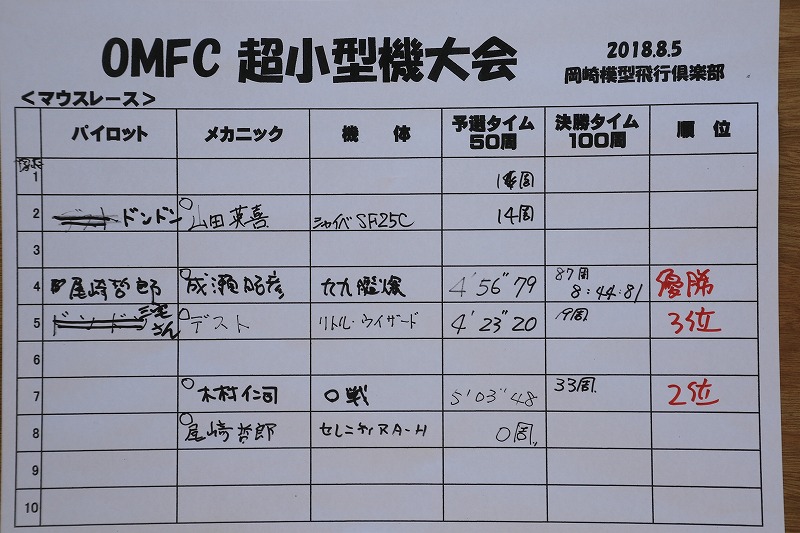 OMFC 超小型機大会
2018.8.5
岡崎模型飛行倶楽部
＜マウスレース＞
パイロット メカニック 機 体 予選タイム 50周 決勝タイム 100周 順 位
1 周
2 ドンドン 山田英喜 シャイベSF25C 14周
3
4 尾崎哲郎 成瀬昭彦 九九艦爆 4'56"79 87周 8:44:81 優勝
5 さん デスト リトル・ウイザード 4'23"20 19周 3位
6
7 木村仁司 0戦 5'03"48 33周. 2位
8 尾崎哲郎 RA-H 0周.
9
10